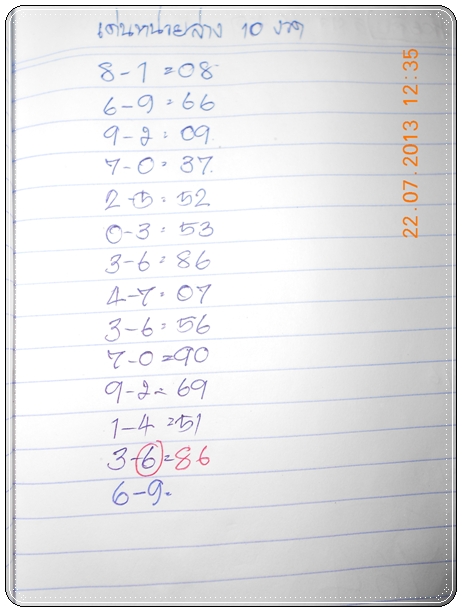 เด่นหน่วยล่าง 10 งวด
8-1=08
6-9=66
9-2=09
7-0=37
2-5=52
0-3=53
3-6=86
4-7=07
3-6=56
7-0=90
9-2=69
1-4=51
3-6=86
6-9=
22.07.2013 12:35